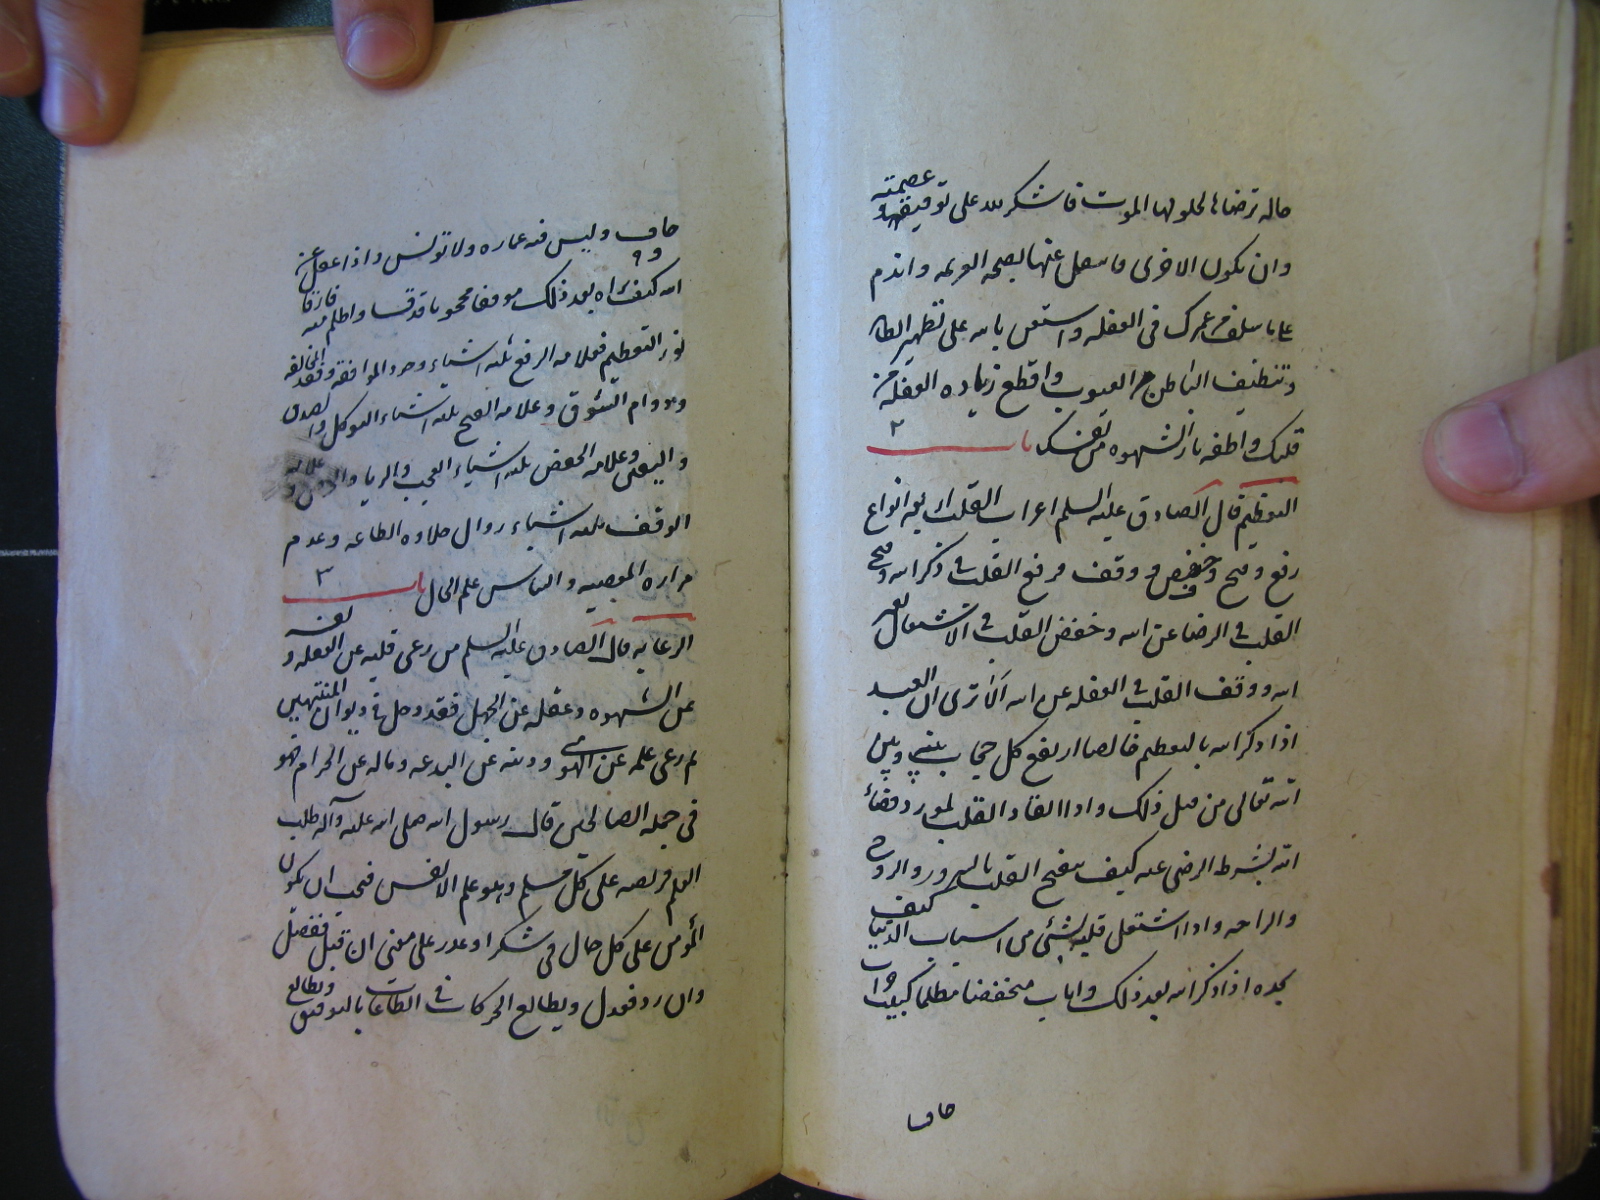 حاله ترضاها لحلولها الموت فاشكر لله على توفيقه و عصمته
وان يكون الاخرى فاسقل عنها بصحه العزيمه واندم
على ما سلف من عمرك فى الغفله واستعن بالله على تطهير الظاهر
وتنظيف الباطن من العيوب واقطع زياده الغفله من
قلبك واطفه نار الشهوه من نفسك باب ٢
التعظيم قال الصادق عليه السلم اعراب القلب اربعه انواع
رفع وفتح وخفض ووقف فرفع القلب فى ذكر الله وفتح
القلب فى الرضا عن الله وخفض القلب فى الاشتغال بغير
الله ووقف القلب فى الغفله عن الله الا ترى ان العبد
اذا ذكر الله بالتعظيم خالصا ارتفع كل حجاب بينه وبين
الله تعالى من قبل ذلك واذا انقاد القلب لمورد قضاء
الله بشرط الرضى عنه كيف ينفتح القلب بالسرور والروح
والراحه واذا اشتغل قلبه بشئ من اسباب الدنيا كيف
يجده اذا ذكر الله بعد ذلك واناب منخفضا مظلما كبيت خراب
خاف
خاف وليس فيه عماره ولا تونس واذا غفل عن
الله كيف تراه بعد ذلك موقوفا محجوبا قد قسا واظلم منذ فارق
نور التعظيم فعلامه الرفع ثلثه اشياء وجود الموافقه وفقد المخالفه
ودوام الشوق وعلامه الفتح ثلثه اشياء التوكل والصدق
واليقين وعلامه الخفض ثلثه اشياء العجب والريا والحرص وعلامه
الوقف ثلثه اشياء زوال حلاوه الطاعه وعدم
مراره المعصيه والتباس علم الحال باب ٣
الرعايه قال الصادق عليه السلم من رعى قلبه عن الغفله و نفسه
عن الشهوه وعقله عن الجهل فقد دخل فى ديوان المنتبهين
ثم رعى علمه عن الهوى ودينه عن البدعه وماله عن الحرام فهو
فى جمله الصالحين قال رسول الله صلى الله عليه وآله طلب
العلم فريضه على كل مسلم وهو علم الانفس فيجب ان يكون
المؤمن على كل حال فى شكر او عذر على معنى ان قبل ففضل
وان رد فعدل ويطالع الحركات فى الطاعات بالتوفيق ويطالع